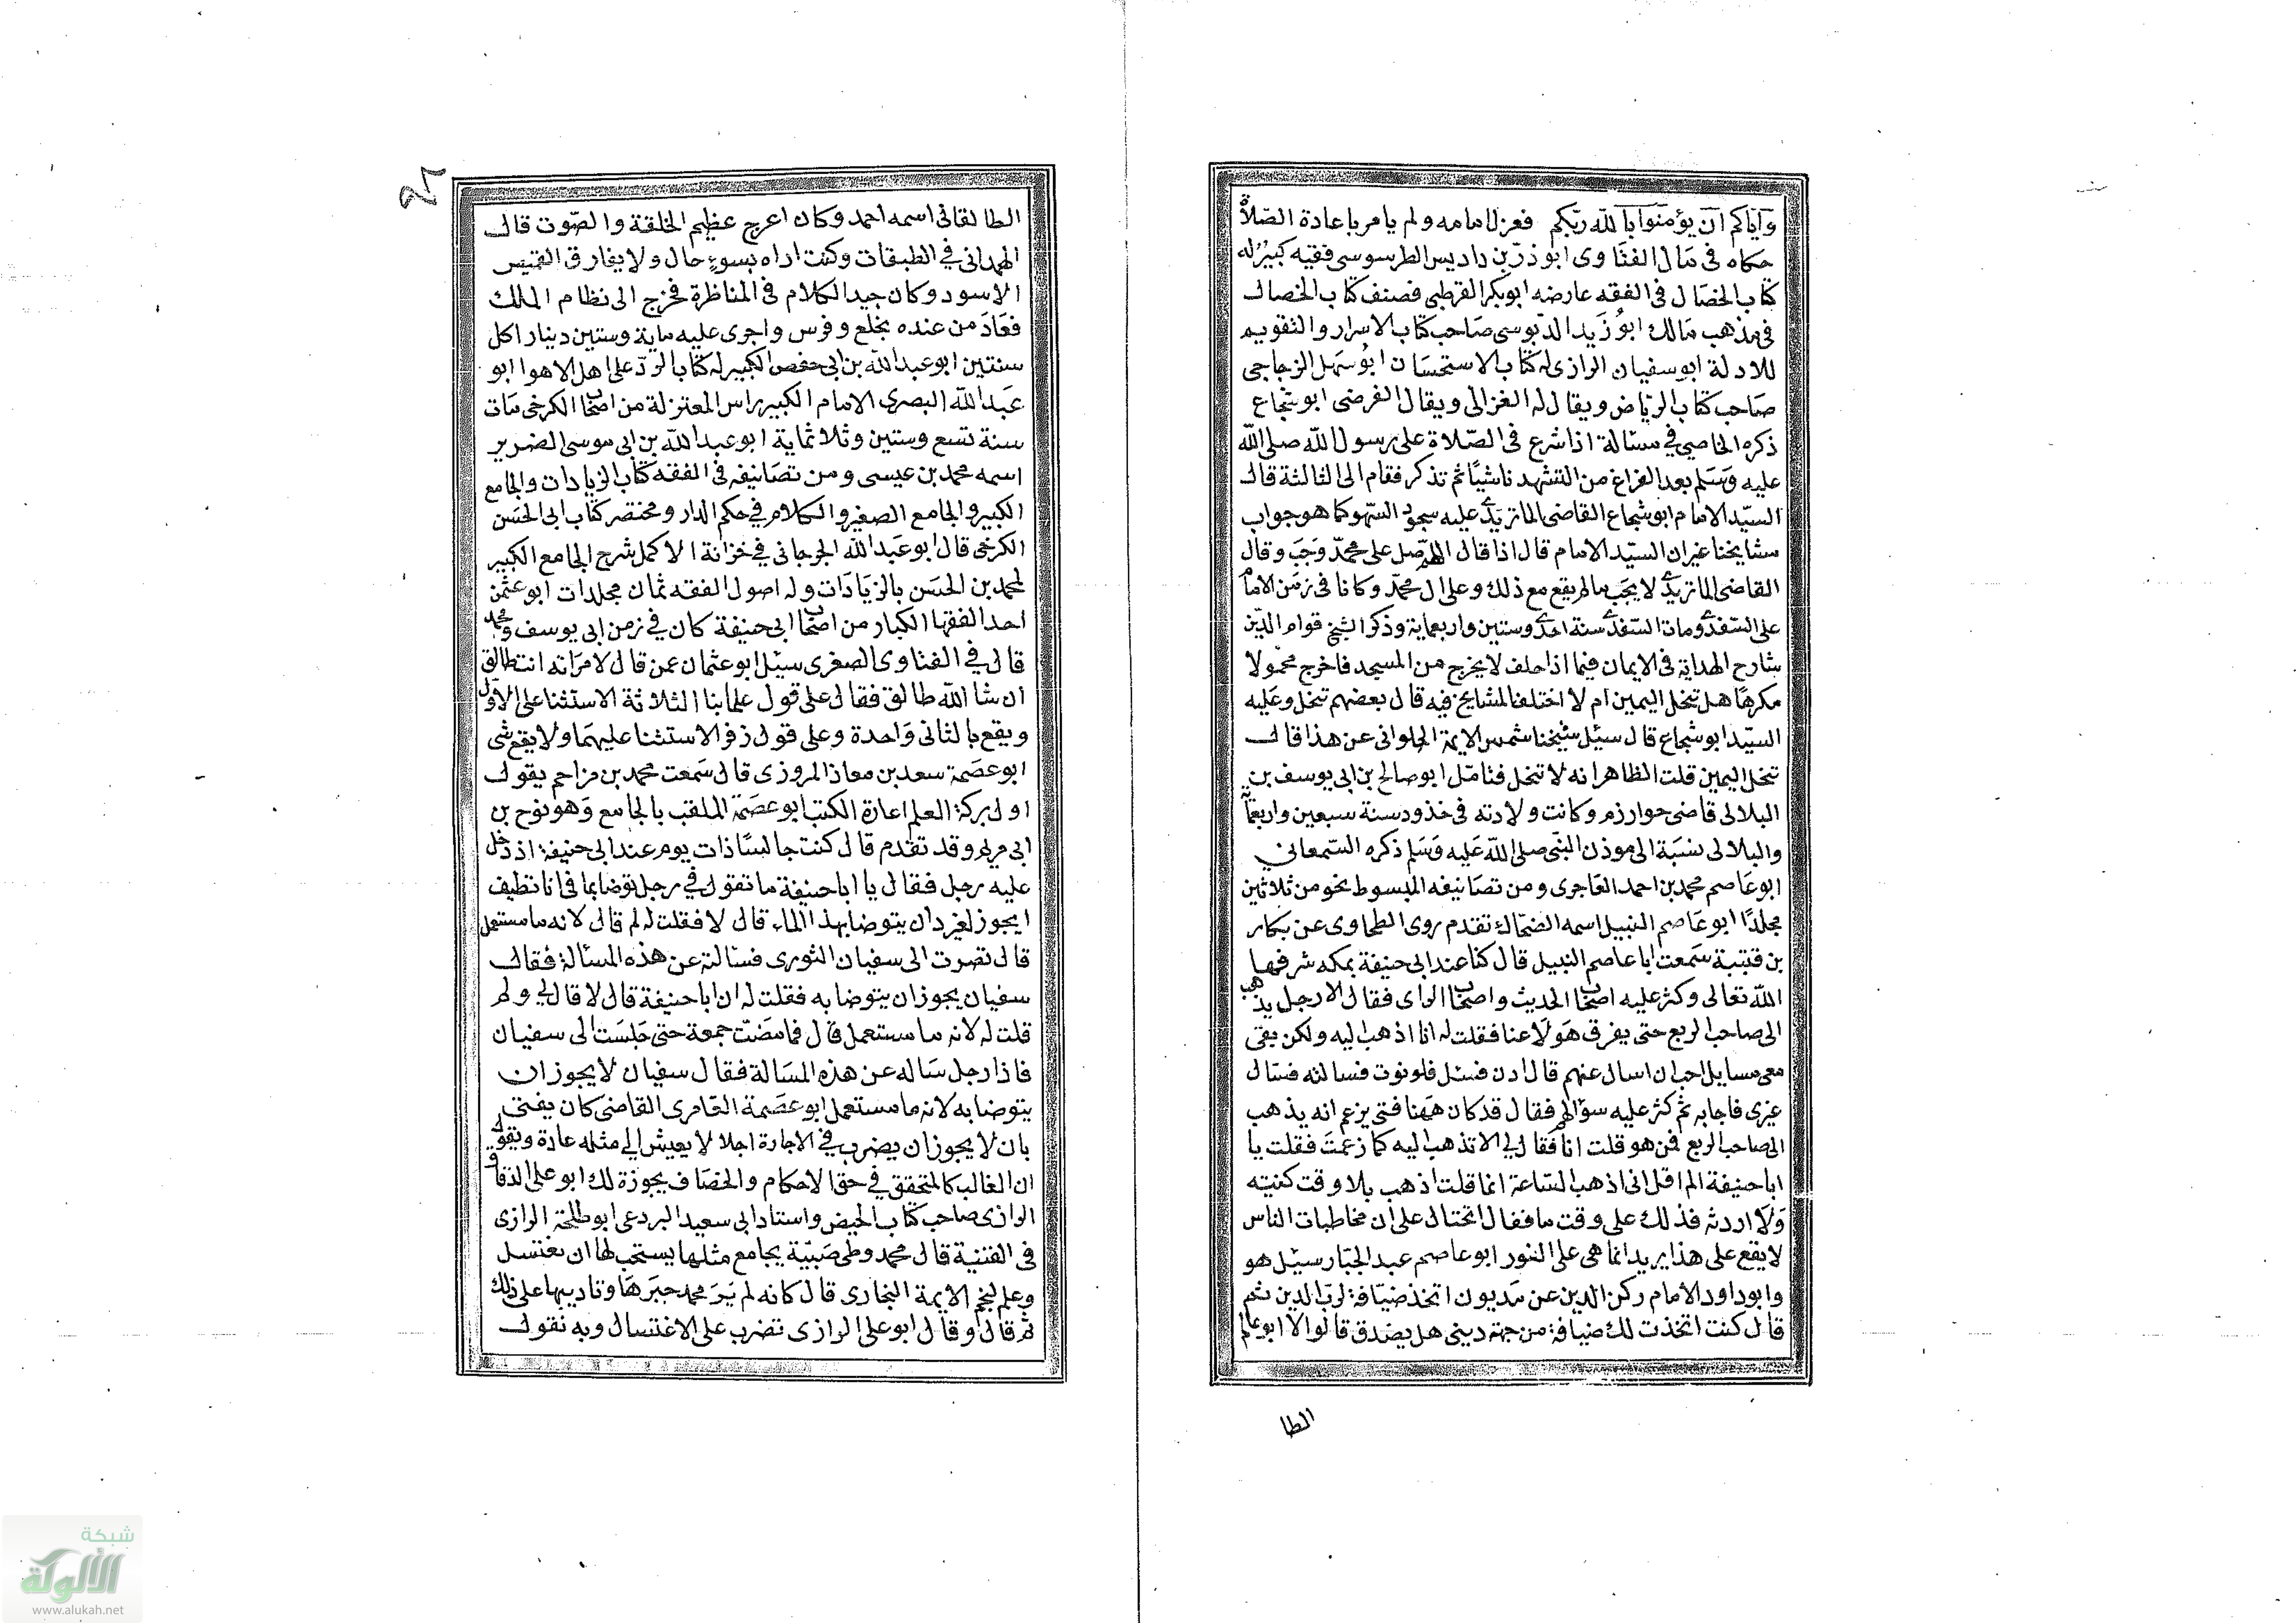 وآياكم ان يؤمنوا بالله ربكم فعزل امامه ولم يامر باعادة الصلاة
حكاه في مآل الفتاوى ابوذر بن داديس الطرسوسى فقيه كبير له
كتاب الخصال في الفقه عارضه ابو بكر القرطبي فصنف كتاب الخصال
في مذهب مالك ابو زيد الدبوسى صاحب كتاب الاسرار والتقويم
للادلة ابو سفيان الرازى له كتاب الاستحسان ابو سهل الزجاجى
صاحب كتاب الرياض ويقال له الغزالى ويقال الفرضى ابو شجاع
ذكره الخاصي في مسألة اذا شرع في الصلاة على رسول الله صلى الله
عليه وسلم بعد الفراغ من التشهد ناسيا ثم تذكر فقام الى الثالثة قال
السيد الامام ابو شجاع القاضى الماتريدى عليه سجود السهو كما هو جواب
مشايخنا غير ان السيد الامام قال اذا قال اللهم صل على محمد وجب وقال
القاضى الماتريدى لا يجب مالم يقع مع ذلك وعلى ال محمد وكانا في زمن الامام
على السغدى ومات السغدى سنة احدى وستين واربعماية وذكر الشيخ قوام الدين
شارح الهداية في الايمان فيما اذا حلف لا يخرج من المسجد فاخرج محمولا
مكرها هل تنحل اليمين ام لا اختلف المشايخ فيه قال بعضهم تنحل وعليه
السيد ابو شجاع قال سئل شيخنا شمس الايمة الحلوانى عن هذا قال
تنحل اليمين قلت الظاهر انه لا تنحل فتامل ابو صالح بن ابى يوسف بن
البلالى قاضى خوارزم وكانت ولادته في حدود سنة سبعين واربعماية
والبلالى نسبة الى موذن النبى صلى الله عليه وسلم ذكره السمعاني
ابو عاصم محمد بن احمد العامرى ومن تصانيفه المبسوط نحو من ثلاثين
مجلدا ابو عاصم النبيل اسمه الضحاك تقدم روى الطحاوى عن بكار
بن قتيبة سمعت ابا عاصم النبيل قال كنا عند ابى حنيفة بمكه شرفها
الله تعالى وكثر عليه اصحاب الحديث واصحاب الراى فقال الا رجل يذهب
الى صاحب الربع حتى يفرق هولا عنا فقلت له انا اذهب اليه ولكن بقى
معى مسايل احب ان اسال عنهم قال ادن فسئل فدنوت فسالته فسال
غيرى فاجابه ثم كثر عليه سؤالهم فقال قد كان ههنا فتى يزعم انه يذهب
الى صاحب الربع فمن هو قلت انا فقال لي الا تذهب اليه كما زعمت فقلت يا
ابا حنيفة الم اقل انى اذهب الساعة انما قلت اذهب بلا وقت كنيته
ولا اردته فذلك على وقت ما فقال اتحتال على ان مخاطبات الناس
لا يقع على هذا يريد انما هى على الفور ابو عاصم عبد الجبار سئل هو
وابو داود الامام ركن الدين عن مديون اتخذ ضيافة لرب الدين ثم
قال كنت اتخذت لك ضيافة من جهة دينى هل يصدق قالوا لا ابو علم
الطا
٩٢
الطالقانى اسمه احمد وكان اعرج عظيم الخلقة والصوت قال
الهمدانى في الطبقات وكنت اراه بسوء حال ولا يفارق القميص
الاسود وكان جيد الكلام في المناظرة فخرج الى نظام الملك
فعاد من عنده بخلع وفرس واجرى عليه ماية وستين دينارا كل
سنتين ابو عبد الله بن ابى حفص الكبير له كتاب الرد على اهل الاهوا ابو
عبد الله البصرى الامام الكبير راس المعتزلة من اصحاب الكرخى مات
سنة تسع وستين وثلاثماية ابو عبد الله بن ابى موسى الضرير
اسمه محمد بن عيسى ومن تصانيفه في الفقه كتاب الزيادات والجامع
الكبير والجامع الصغير والكلام في حكم الدار ومختصر كتاب ابى الحسن
الكرخى قال ابو عبد الله الجرجانى في خزانة الاكمل شرح الجامع الكبير
لمحمد بن الحسن بالزيادات وله اصول الفقه ثمان مجلدات ابو عثمن
احد الفقها الكبار من اصحاب ابى حنيفة كان في زمن ابى يوسف ومحمد
قال في الفتاوى الصغرى سئل ابو عثمان عمن قال لامرأته انت طالق
ان شا الله طالق فقال على قول علمابنا الثلاثة الاستثنا على الاول
ويقع بالثانى واحدة وعلى قول زفر الاستثنا عليهما ولا يقع شى
ابو عصمة سعد بن معاذ المروزى قال سمعت محمد بن مزاحم يقول
اول بركة العلم اعارة الكتب ابو عصمة الملقب بالجامع وهو نوح بن
ابى مريم وقد تقدم قال كنت جالسا ذات يوم عند ابى حنيفة اذ دخل
عليه رجل فقال يا ابا حنيفة ما تقول في رجل توضا بما في انا نظيف
ايجوز لغيره ان يتوضا بهذا الماء قال لا فقلت له لم قال لانه ما مستعمل
قال نصرت الى سفيان الثورى فسالته عن هذه المسألة فقال
سفيان يجوز ان يتوضا به فقلت له ان ابا حنيفة قال لا قال لي ولم
قلت له لانه ما مستعمل قال فما مضت جمعة حتى جلست الى سفيان
فاذا رجل ساله عن هذه المسالة فقال سفيان لا يجوز ان
يتوضا به لانه ما مستعمل ابو عصمة العامرى القاضى كان يفتى
بان لا يجوز ان يضرب في الاجارة اجلا لا يعيش الى مثله عادة ويقول
ان الغالب كالمتحقق في حق الاحكام والخصاف يجوزة لك ابو على الدقاق
الرازى صاحب كتاب الحيض واستاد ابى سعيد البردعى ابو طلحة الرازى
في القنية قال محمد وطى صبية يجامع مثلها يستحب لها ان تغتسل
وعلم لنجم الايمة البخارى قال كانه لم ير محمد جبرها وتاديبها على ذلك
ثم قال وقال ابو على الرازى تضرب على الاغتسال وبه نقول
شبكة
الألوكة
www.alukah.net